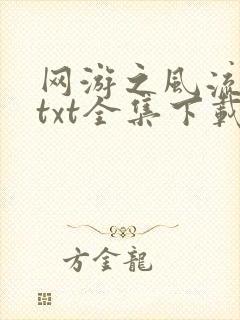 网游之风流
txt全集下载
方金龍